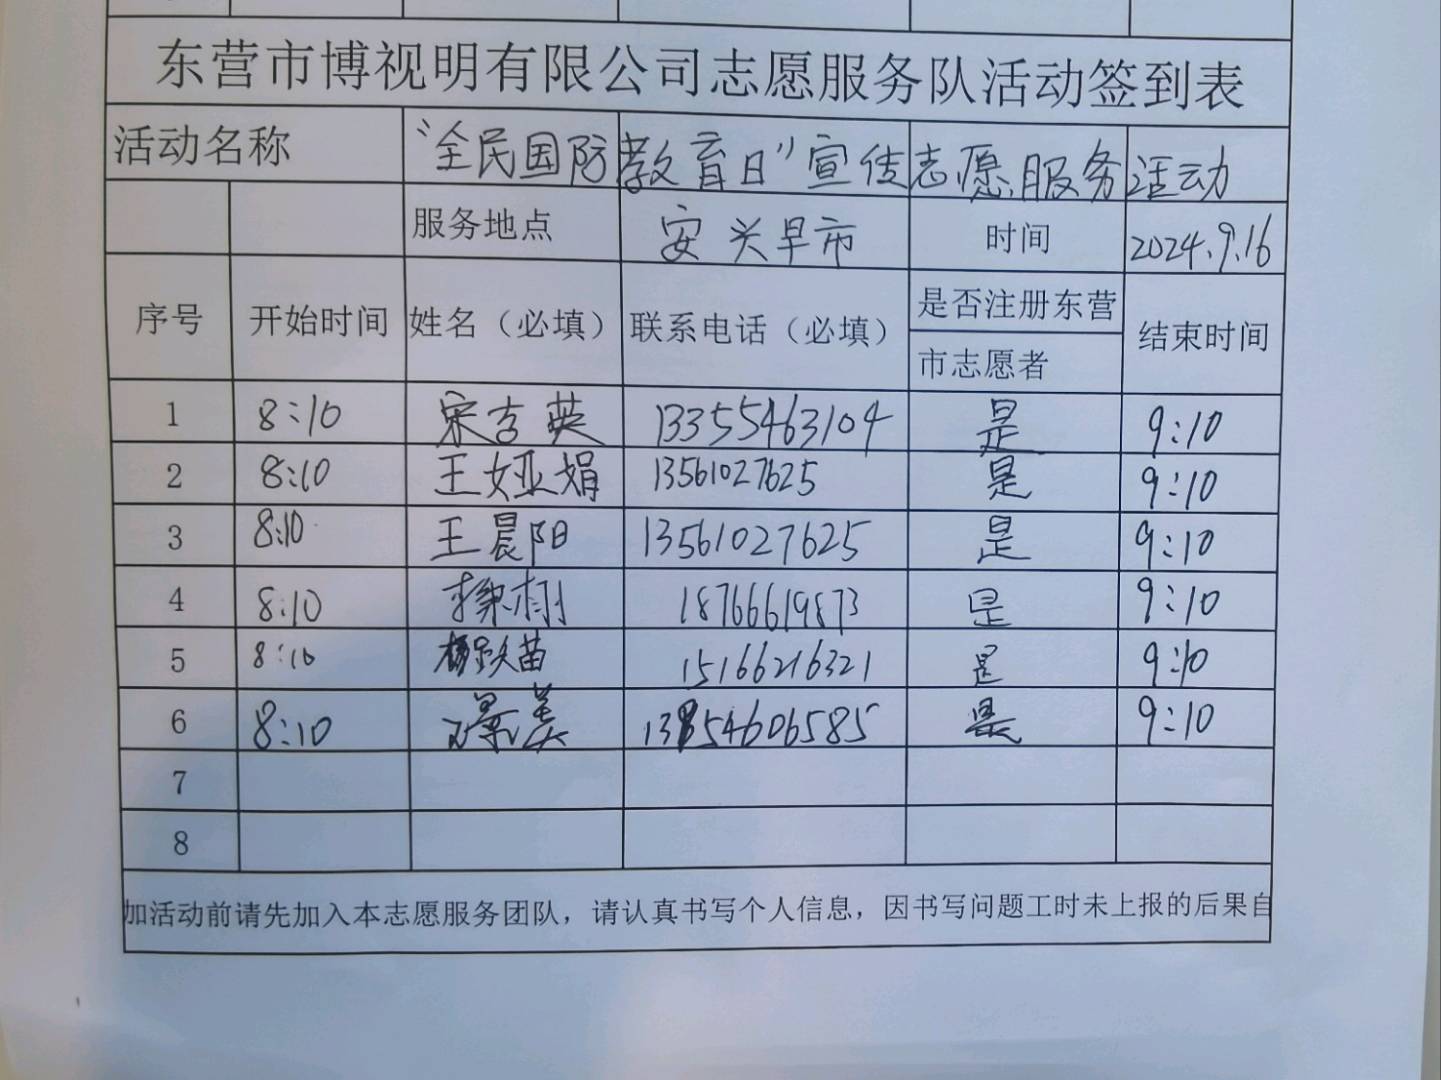 东营市博视明有限公司志愿服务队活动签到表
活动名称 “全民国防教育日”宣传志愿服务活动
服务地点 安兴早市 时间 2024.9.16
序号 开始时间 姓名（必填） 联系电话（必填） 是否注册东营市志愿者 结束时间
1 8:10 宋吉英 13355463104 是 9:10
2 8:10 王娅娟 13561027625 是 9:10
3 8:10 王晨阳 13561027625 是 9:10
4 8:10 18766619873 是 9:10
5 8:10 苗 15166216321 是 9:10
6 8:10 景美 13854606585 是 9:10
7
8
加活动前请先加入本志愿服务团队，请认真书写个人信息，因书写问题工时未上报的后果自